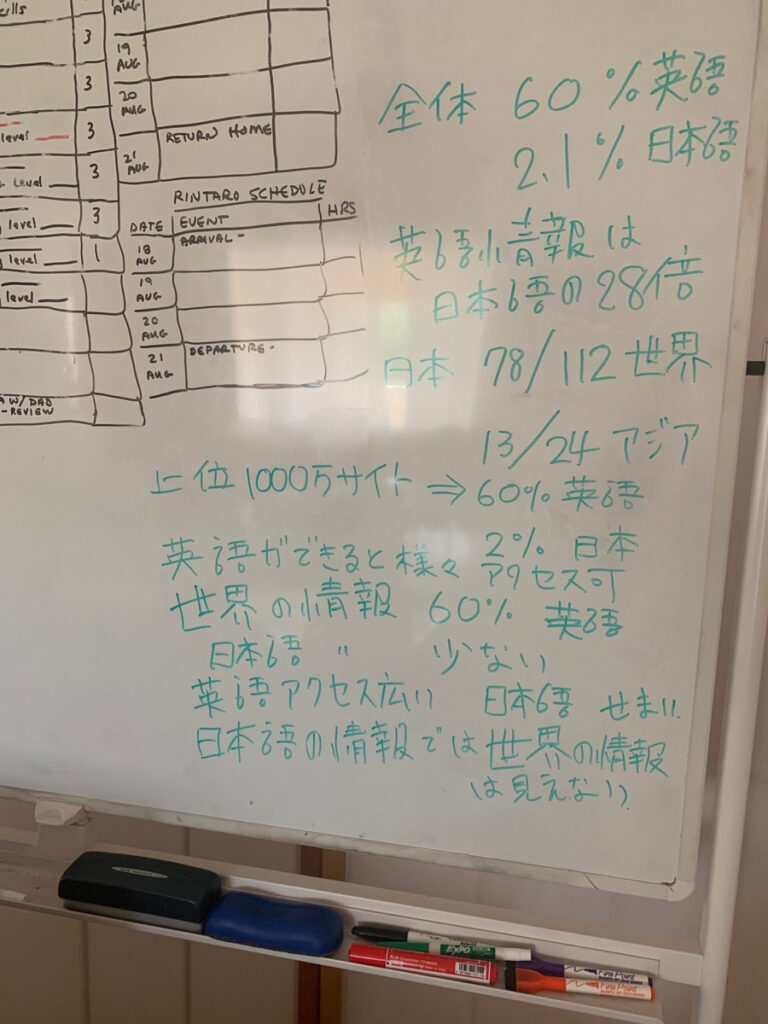 3
3
level 3
level 3
level 3
level 1
level
W/ DAD
- REVIEW
AUG
19 AUG
20 AUG
21 AUG RETURN HOME
RINTARO SCHEDULE
DATE EVENT HRS
18 AUG ARRIVAL -
19 AUG
20 AUG
21 AUG DEPARTURE -
全体 60%英語
2.1% 日本語
英語情報は
日本語の28倍
日本 78/112 世界
13/24 アジア
上位1000万サイト ⇒ 60% 英語
2% 日本
英語ができると様々アクセス可
世界の情報 60% 英語
日本語 〃 少ない
英語アクセス広い 日本語 せまい
日本語の情報では世界の情報
は見えない
EXPO
Fine Point
Fine Point